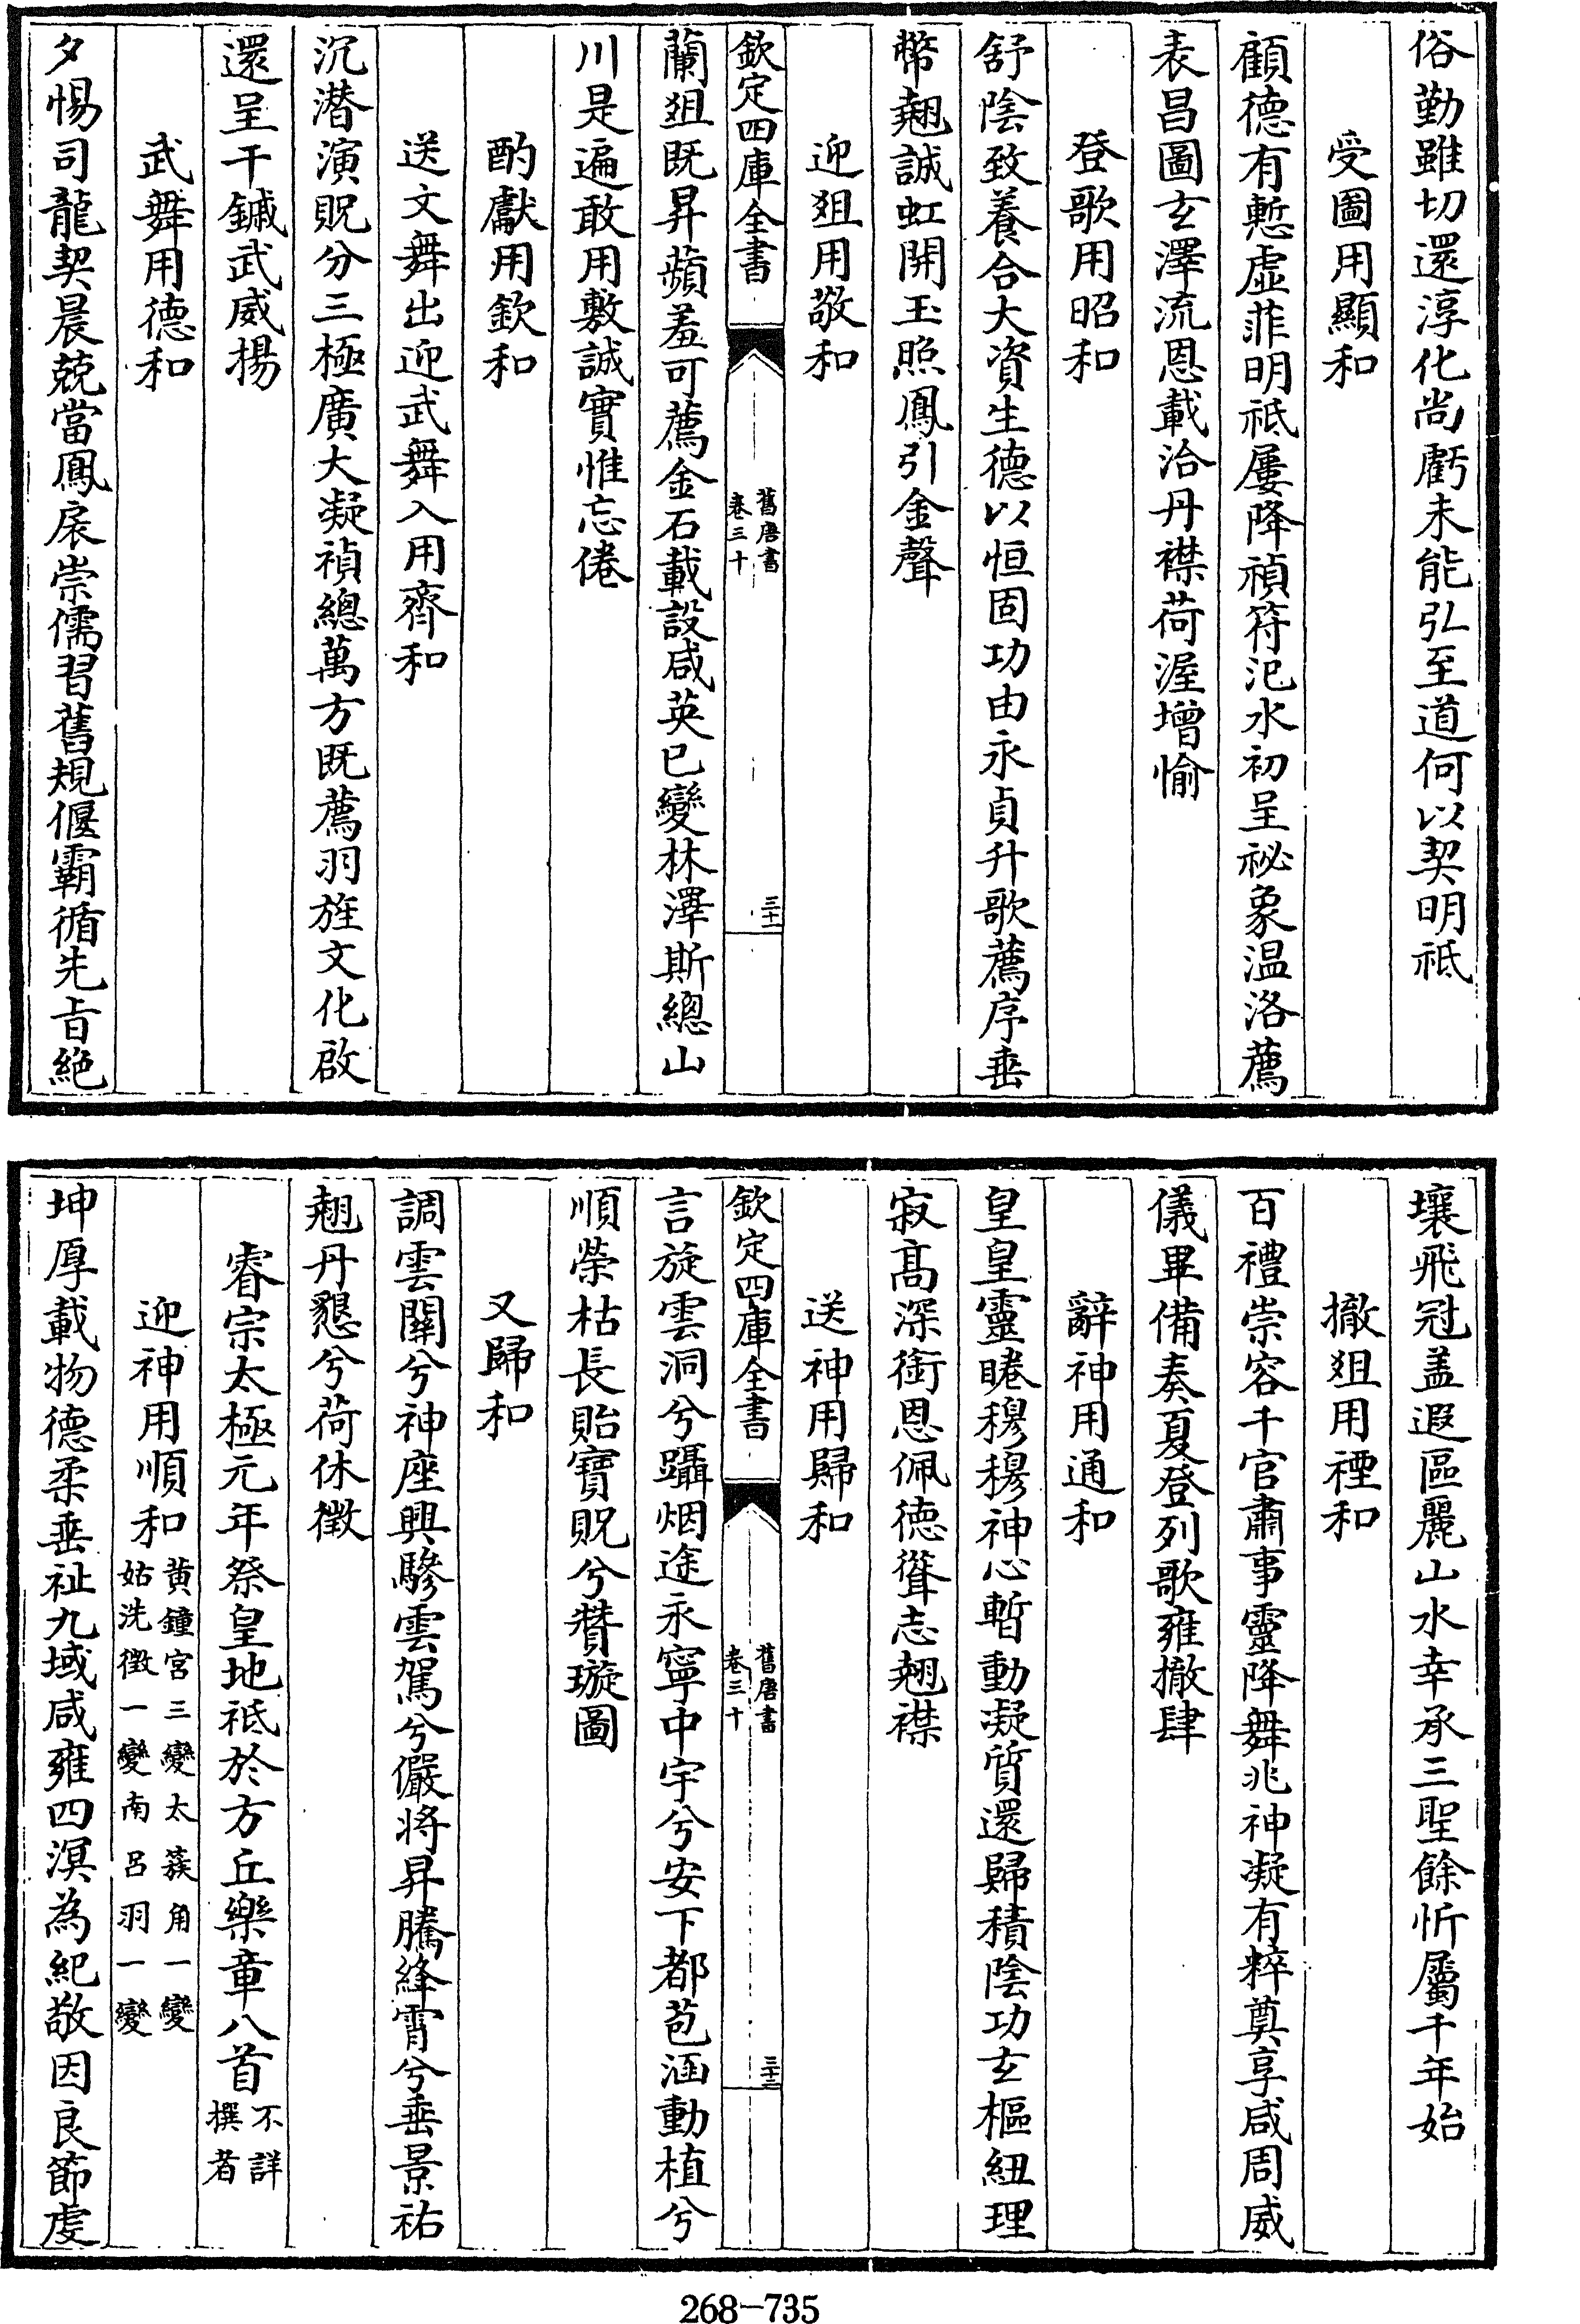 俗勤雖切還淳化尚虧未能弘至道何以契明祗
受圖用顯和
顧德有慙虚菲明祗屢降禎符汜水初呈祕象温洛薦
表昌圖玄澤流恩載洽丹襟荷渥增愉
登歌用昭和
舒陰致養合大資生德以恒固功由永貞升歌薦序垂
幣翹誠虹開玉照鳳引金聲
迎俎用敬和
欽定四庫全書
舊唐書
卷三十
三十二
蘭俎既昇蘋羞可薦金石載設咸英已變林澤斯總山
川是遍敢用敷誠實惟忘倦
酌獻用欽和
送文舞出迎武舞入用齊和
沉潜演貺分三極廣大凝禎總萬方既薦羽旌文化啟
還呈干鏚武威揚
武舞用德和
夕惕司龍契晨兢當鳳扆崇儒習舊規偃霸循先旨絶
壤飛冠盖遐區麗山水幸承三聖餘忻屬千年始
撤俎用禋和
百禮崇容千官肅事靈降舞兆神凝有粹奠享咸周威
儀畢備奏夏登列歌雍撤肆
辭神用通和
皇皇靈睠穆穆神心暫動凝質還歸積陰功玄樞紐理
寂髙深銜恩佩德聳志翹襟
送神用歸和
欽定四庫全書
舊唐書
卷三十
三十三
言旋雲洞兮躡烟途永寧中宇兮安下都苞涵動植兮
順榮枯長貽寶貺兮贊璇圖
又歸和
調雲闋兮神座興驂雲駕兮儼将昇騰絳霄兮垂景祐
翹丹懇兮荷休徴
睿宗太極元年祭皇地祗於方丘樂章八首不詳撰者
迎神用順和黄鐘宫三變太簇角一變姑洗徴一變南呂羽一變
坤厚載物德柔垂祉九域咸雍四溟為紀敬因良節虔
268-735